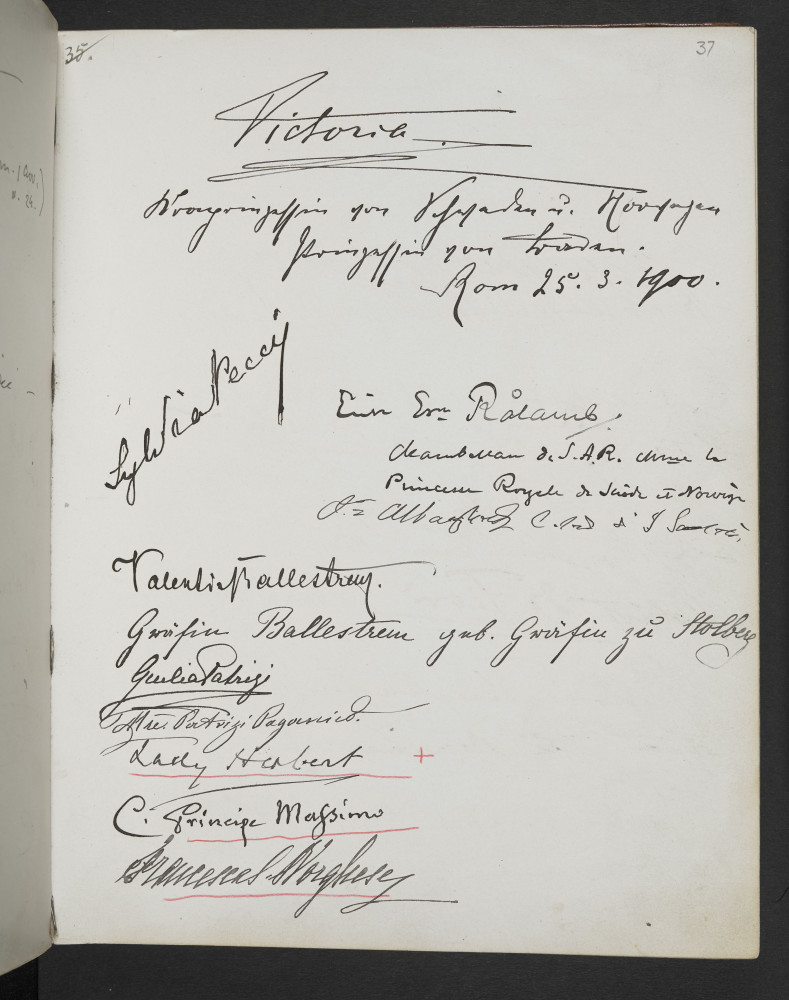 35.
37
Victoria.
Kronprinzessin von Schweden u. Norwegen
Prinzessin von Baden.
Rom 25. 3. 1900.
Sylvia Pecci
Råcamb.
de S.A.R. la
Princesse Royale de Suède et Norvège
Valentin Ballestrem.
Gräfin Ballestrem geb. Gräfin zu Stolberg
Giulia Patrizi
Patrizi Paganico.
Lady Herbert +
C. Principe Massimo
Francesca Borghese